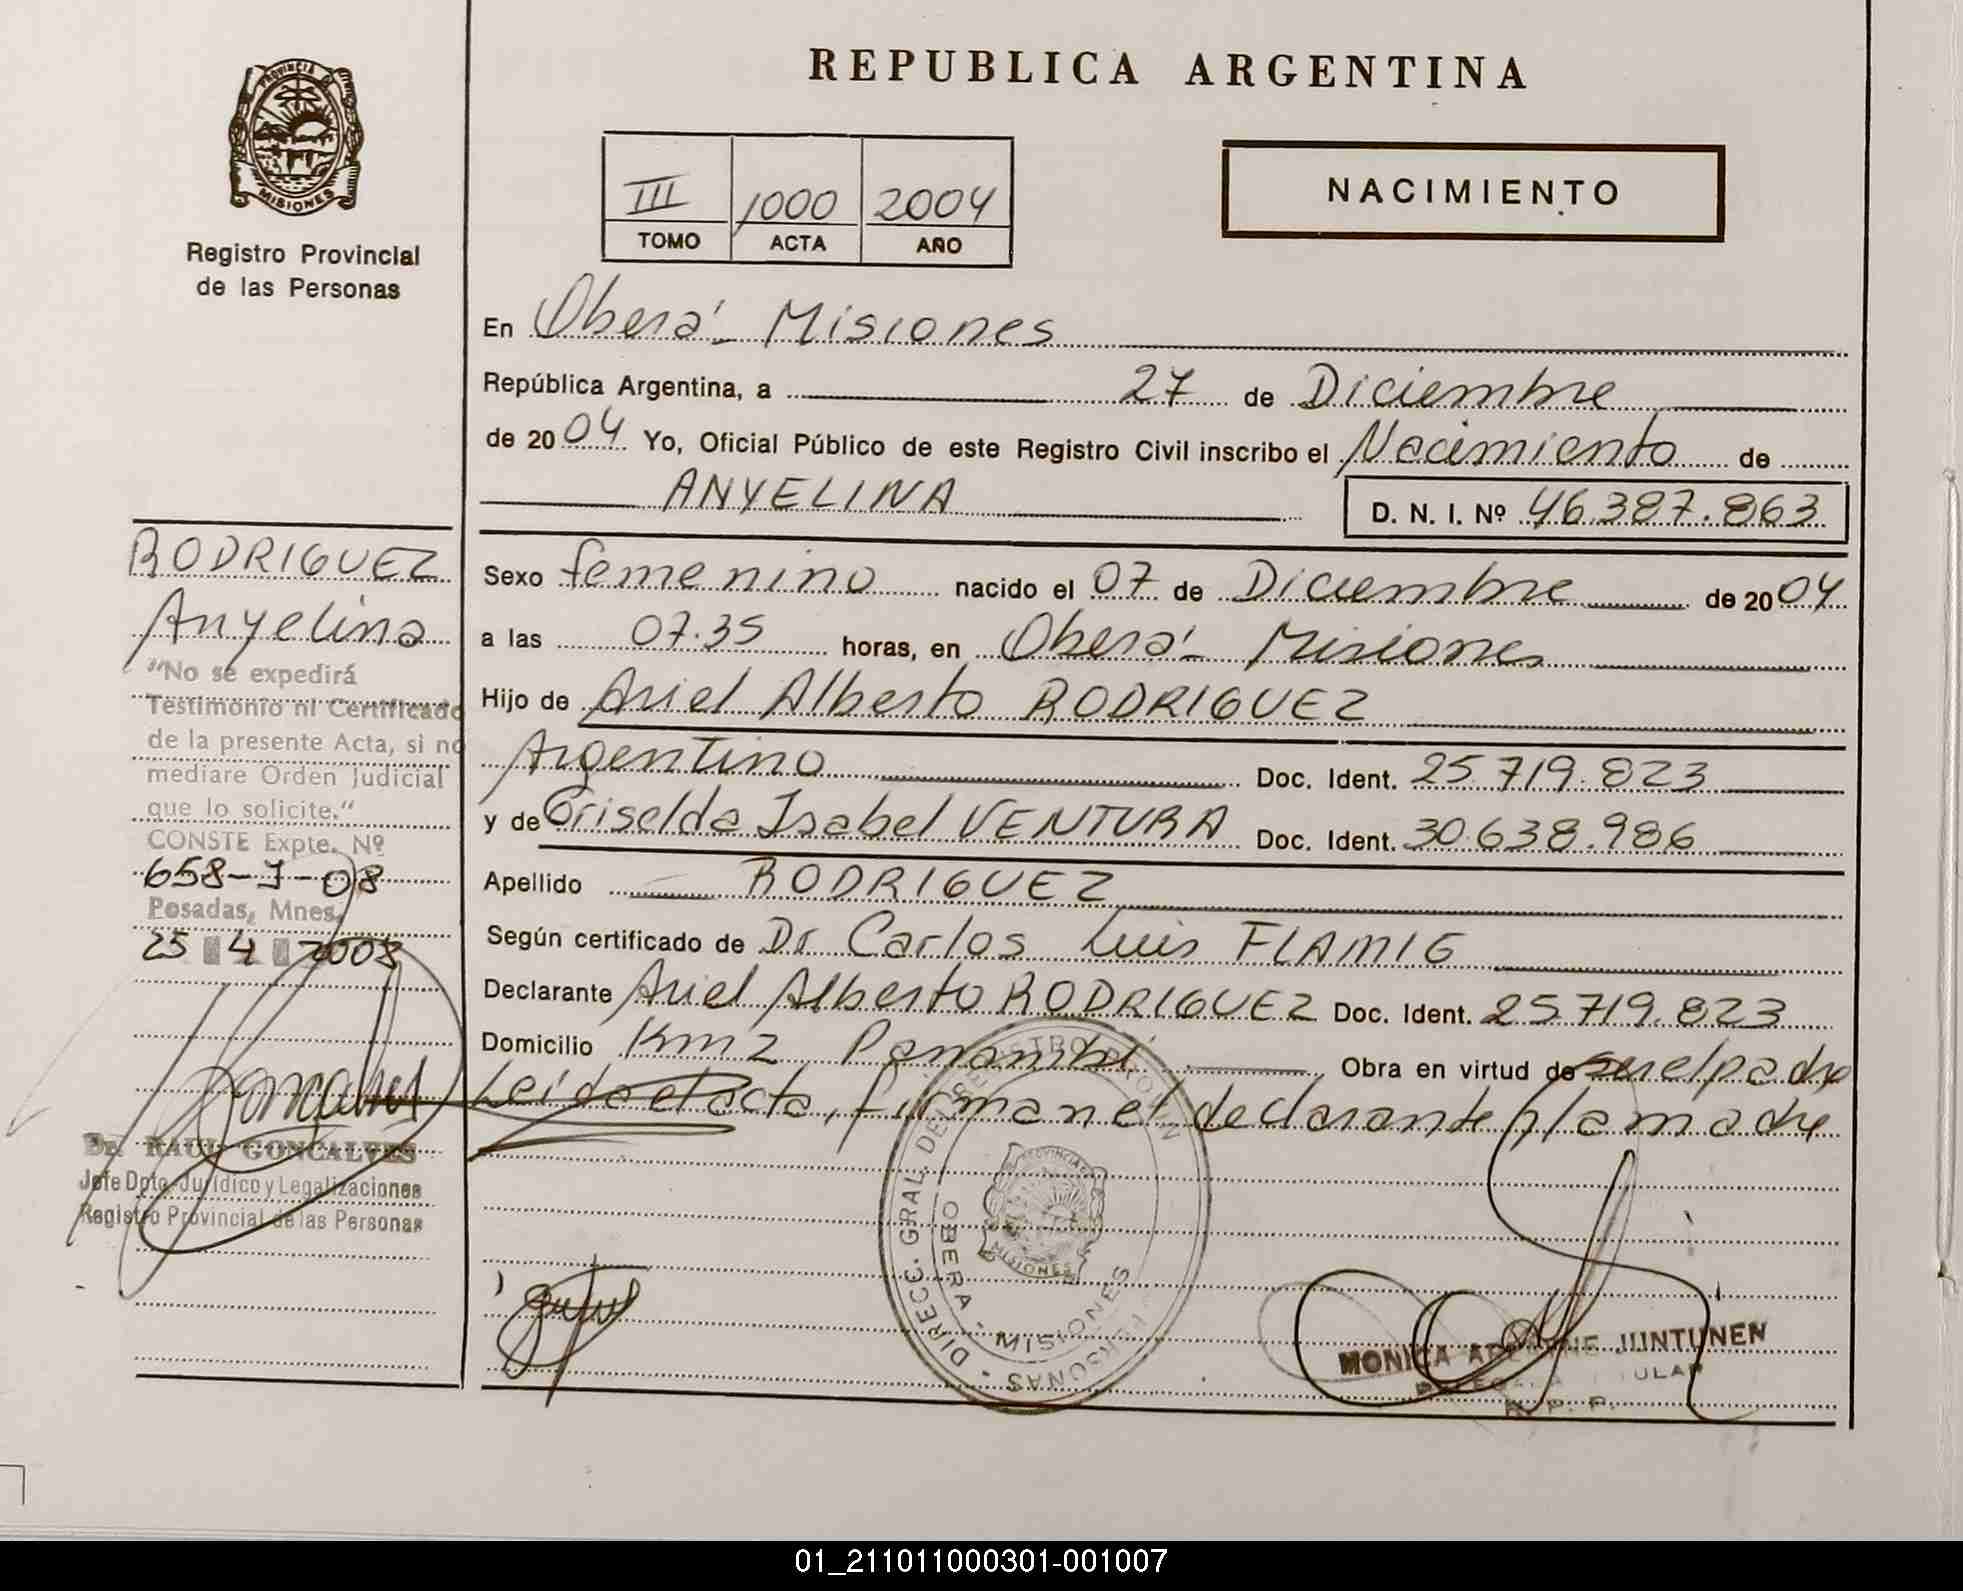 REPUBLICA ARGENTINA
PROVINCIA
MISIONES
Registro Provincial
de las Personas
III 1000 2004
TOMO ACTA AÑO
NACIMIENTO
En Oberá - Misiones
República Argentina, a 27 de Diciembre
de 2004 Yo, Oficial Público de este Registro Civil inscribo el Nacimiento de
ANYELINA D. N. I. Nº 46.387.863
Sexo femenino nacido el 07 de Diciembre de 2004
a las 07.35 horas, en Oberá - Misiones
Hijo de Ariel Alberto RODRIGUEZ
Argentino Doc. Ident. 25.719.823
y de Griselda Isabel VENTURA Doc. Ident. 30.638.986
Apellido RODRIGUEZ
Según certificado de Dr Carlos Luis FLAMIG
Declarante Ariel Alberto RODRIGUEZ Doc. Ident. 25.719.823
Domicilio Km 2 Panambí Obra en virtud de ser el padre
Leída el acta, firman el declarante y la madre
RODRIGUEZ
Anyelina
"No se expedirá
Testimonio ni Certificado
de la presente Acta, si no
mediare Orden Judicial
que lo solicite."
CONSTE Expte. Nº
658-J-08
Posadas, Mnes,
25 4 2008
Dr. RAUL GONCALVES
Jefe Dpto. Jurídico y Legalizaciones
Registro Provincial de las Personas
DIRECC. GRAL. DE REGISTRO PERSONAS
OBERA - MISIONES
PROVINCIA
MISIONES
MONICA JUNTUNEN
R. P. P.
01_211011000301-001007